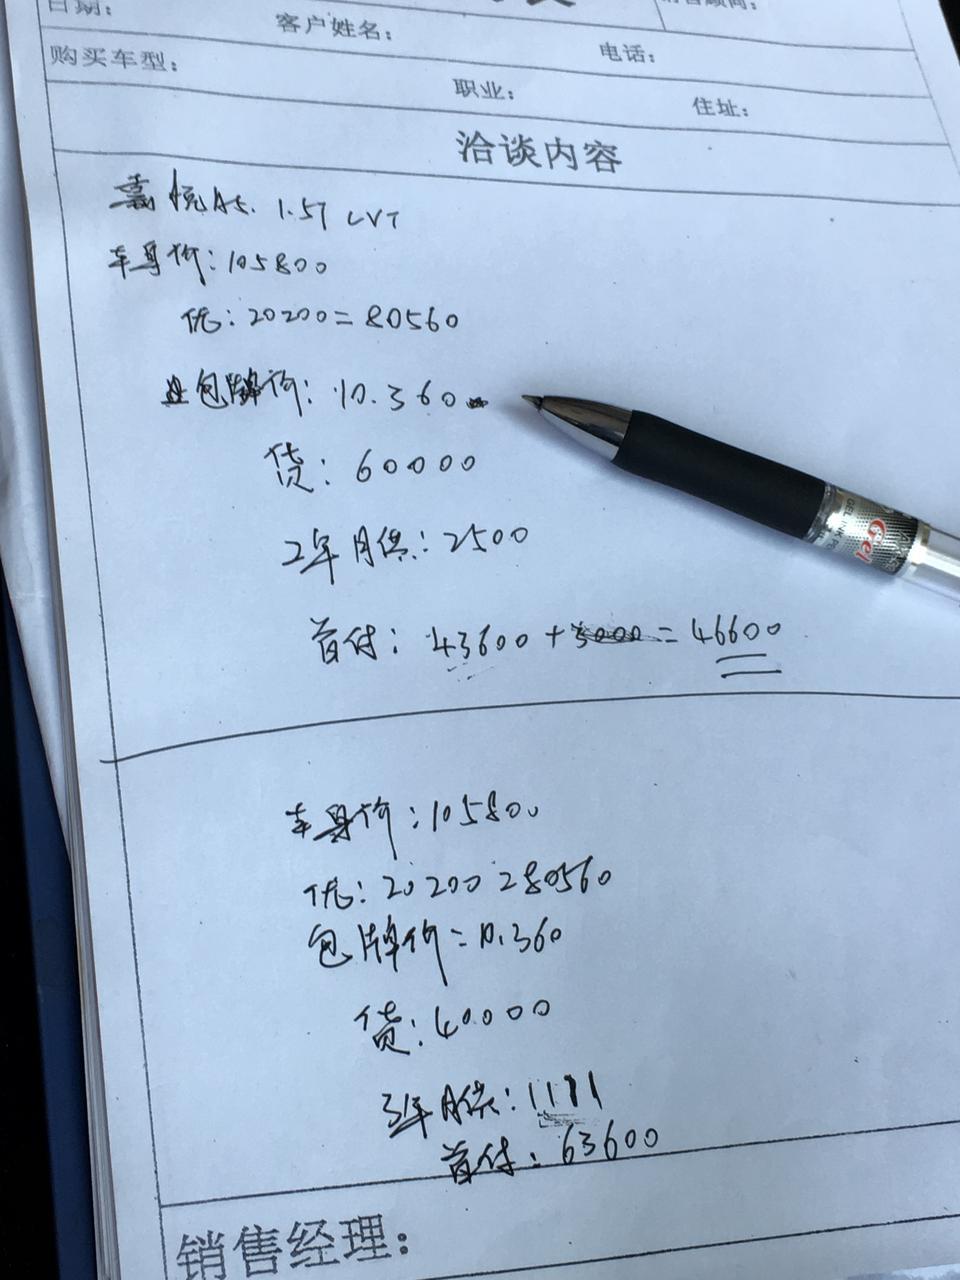 日期：
客户姓名：
销售顾问：
购买车型：
电话：
职业：
住址：
洽谈内容
嘉悦A5. 1.5T CVT
车身价：105800
优：20200=80560
包牌价：10.360
贷：60000
2年月供：2500
首付：43600+3000=46600
车身价：105800
优：20200=80560
包牌价=10.360
贷：40000
3年月供：1111
首付：63600
销售经理：
Gel
GEL INK PE